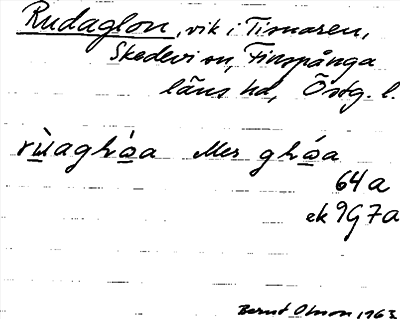 Rudaglon, vik i Tisnaren,
Skedevi sn, Finspånga
läns hd, Östg. l.
rùaghωa Mes ghώa
64 a
ek 9G7a
Bernt Olsson 1963